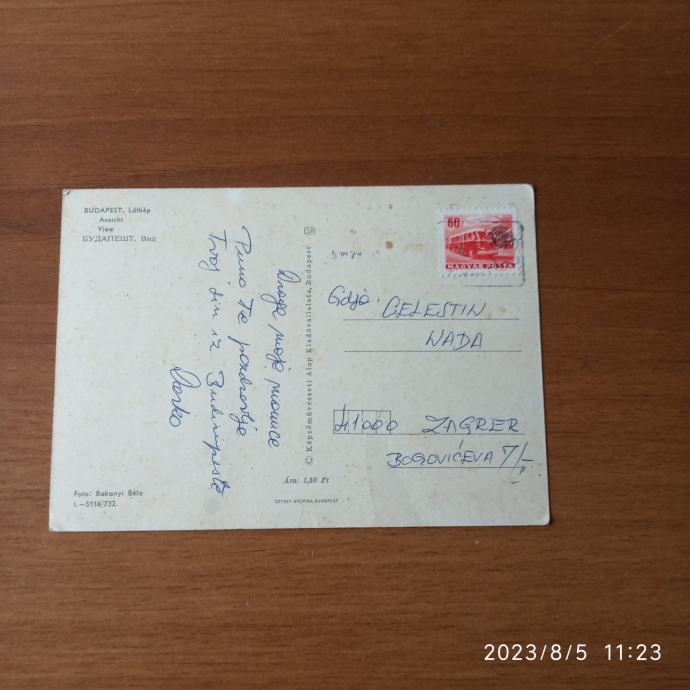 BUDAPEST. Látkép
Ansicht
View
БУДАПЕШТ. Вид
Draga moja
Puno Te pozdravlja
Tvoj sin iz Budimpešte
Darko
Foto: Bakonyi Béla
I.—5116/732.
© Képzőművészeti Alap Kiadóvállalata, Budapest
Ára: 1,50 Ft
OFFSET-NYOMDA, BUDAPEST
60
MAGYAR POSTA
Gdja.
CELESTIN
NADA
41000 ZAGREB
BOGOVIĆEVA 7/
2023/8/5 11:23